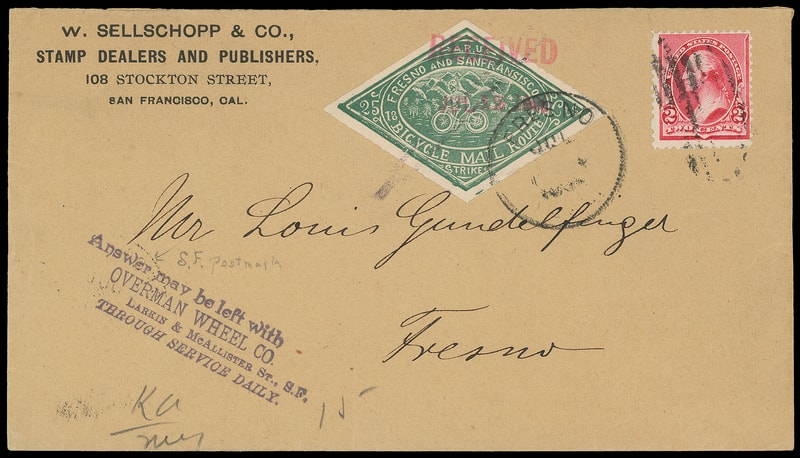 W. SELLSCHOPP & CO.,
STAMP DEALERS AND PUBLISHERS,
108 STOCKTON STREET,
SAN FRANCISCO, CAL.
RECEIVED
A.R.U.
FRESNO AND SAN FRANSISCO
25
18
BICYCLE MAIL ROUTE
STRIKE
FRESNO
JUL
UNITED STATES POSTAGE
2 2
TWO CENTS
Mr Louis Gundelfinger
Fresno
S.F. postmark
Answer may be left with
OVERMAN WHEEL CO.
LARKIN & MCALLISTER ST., S.F.
THROUGH SERVICE DAILY.
15